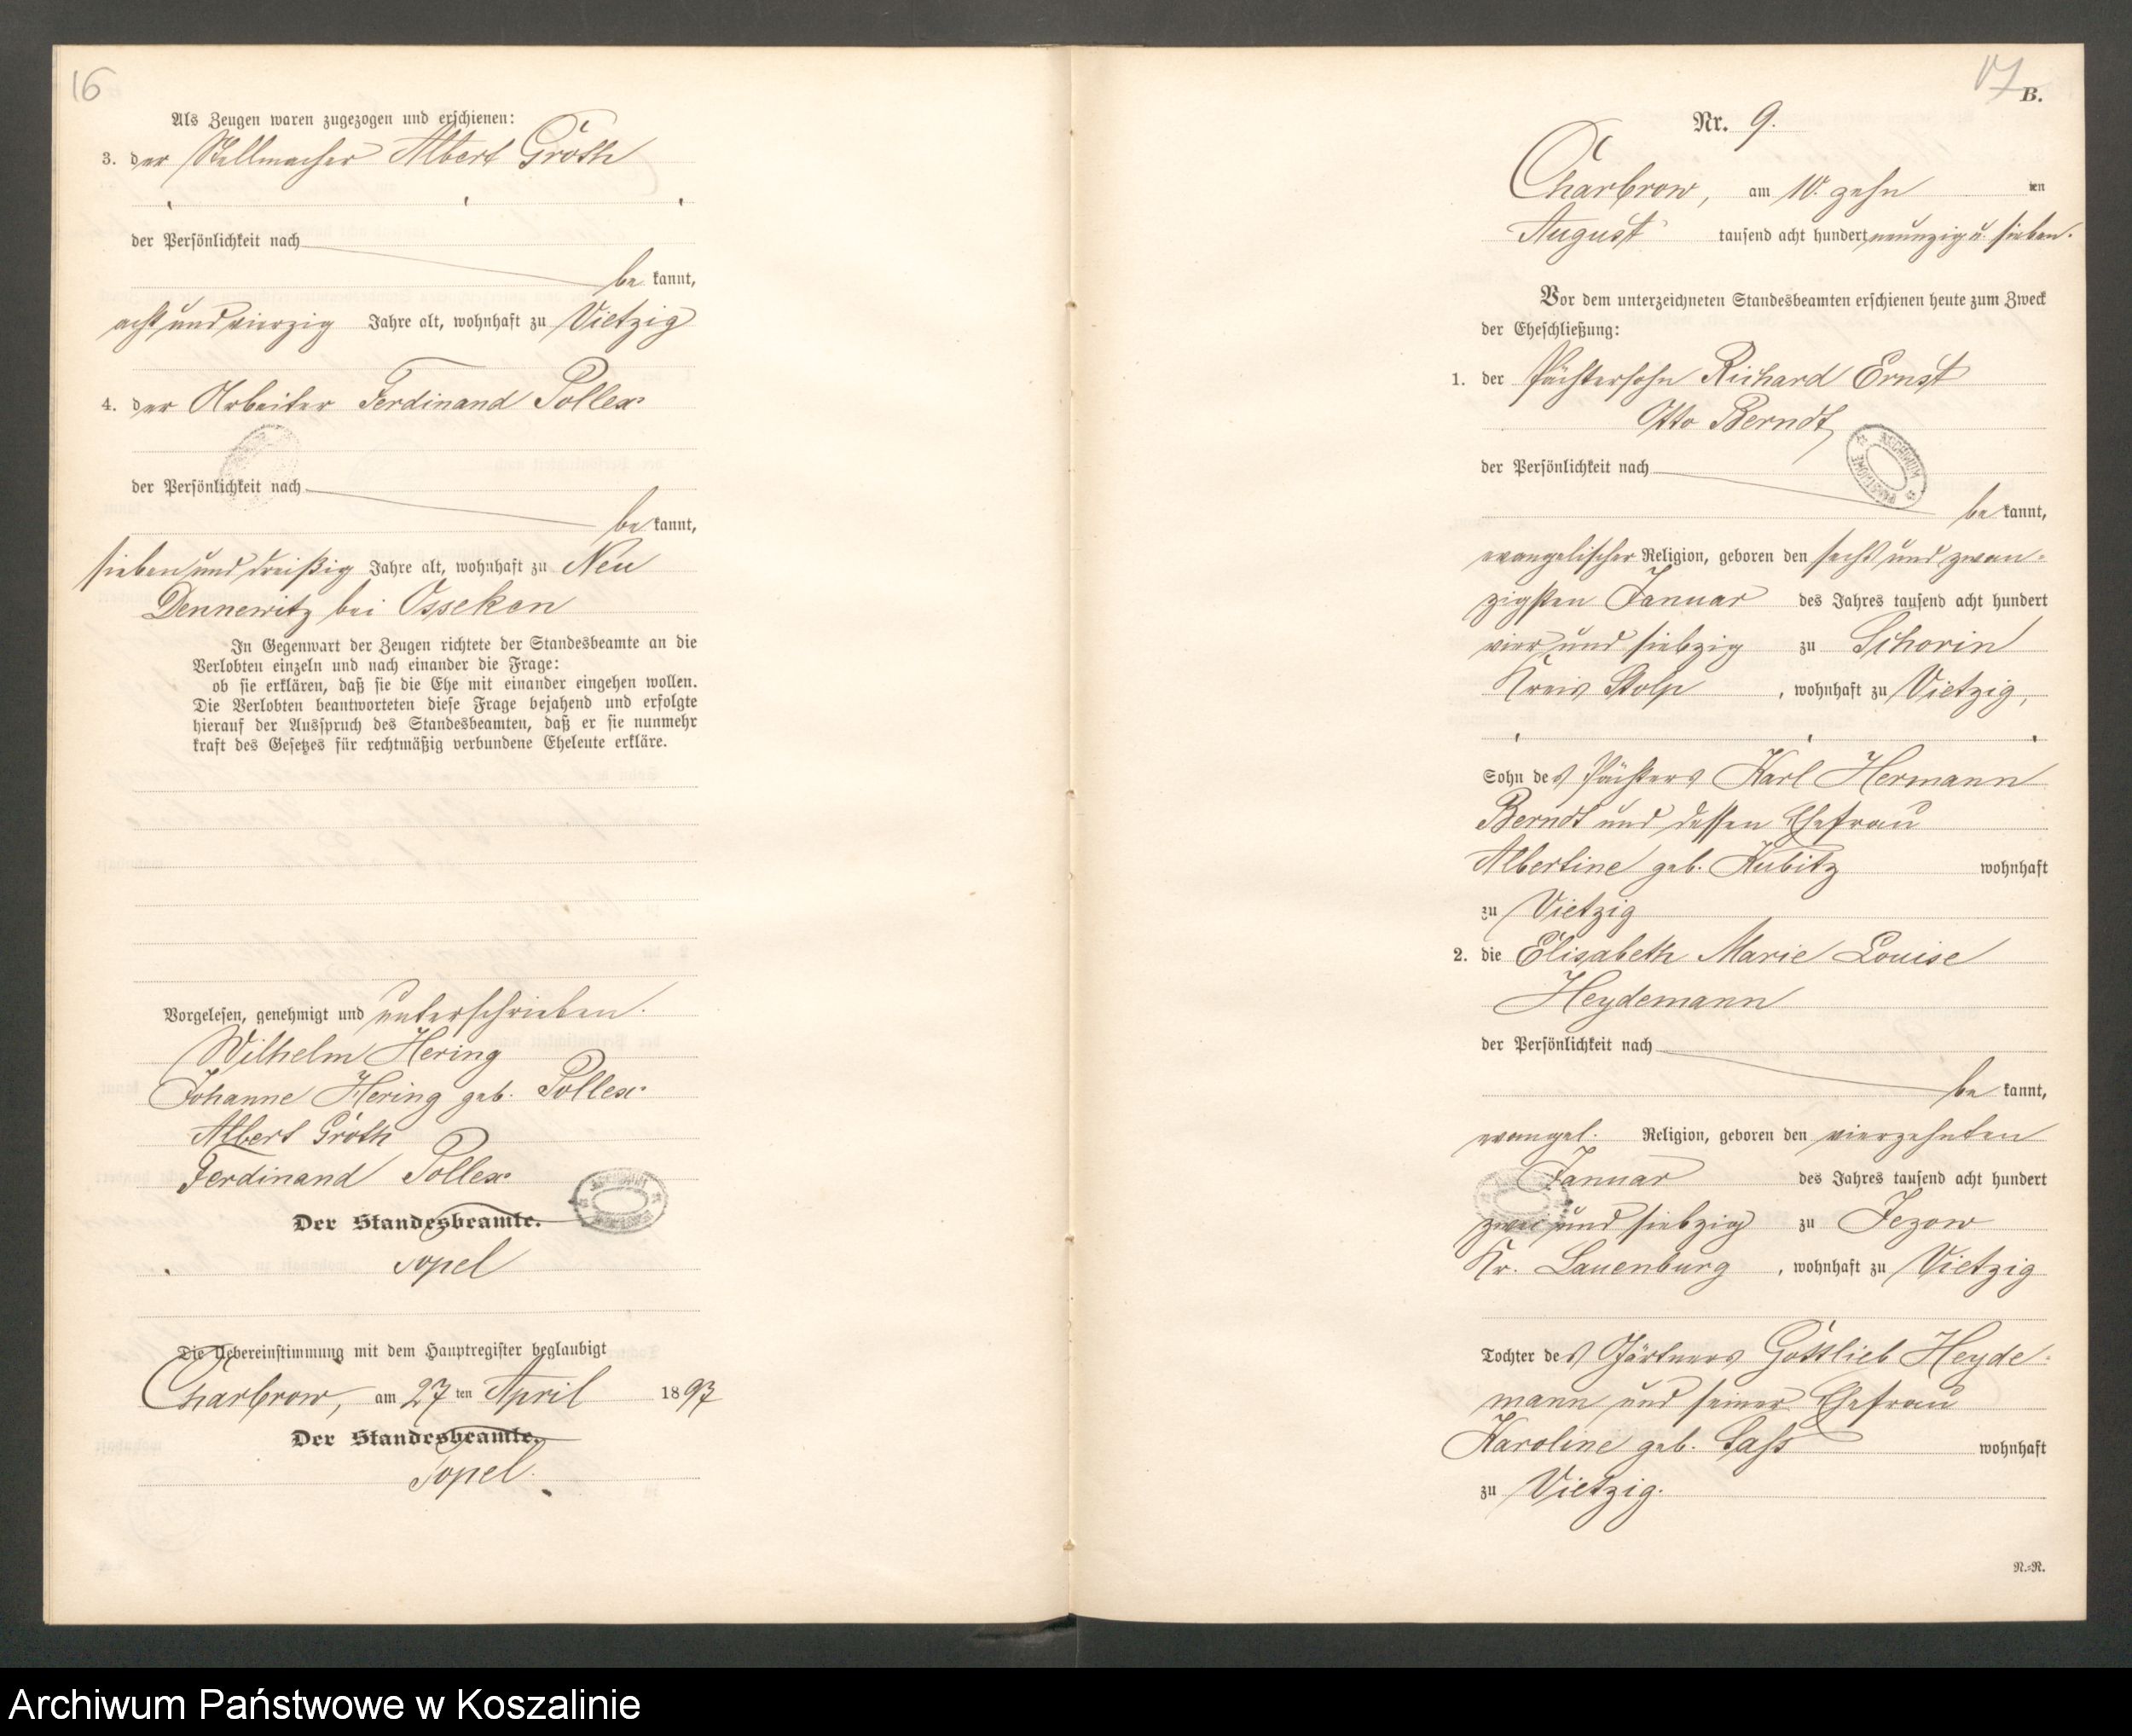 16
Als Zeugen waren zugezogen und erschienen:
3. der Stellmacher Albert Groth
der Persönlichkeit nach
be kannt,
acht und vierzig Jahre alt, wohnhaft zu Vietzig
4. der Arbeiter Ferdinand Pollex
der Persönlichkeit nach
be kannt,
sieben und dreißig Jahre alt, wohnhaft zu Neu
Dennewitz bei Osseken
In Gegenwart der Zeugen richtete der Standesbeamte an die
Verlobten einzeln und nach einander die Frage:
ob sie erklären, daß sie die Ehe mit einander eingehen wollen.
Die Verlobten beantworteten diese Frage bejahend und erfolgte
hierauf der Ausspruch des Standesbeamten, daß er sie nunmehr
kraft des Gesetzes für rechtmäßig verbundene Eheleute erkläre.
Vorgelesen, genehmigt und unterschrieben.
Wilhelm Hering
Johanne Hering geb. Pollex
Albert Groth
Ferdinand Pollex
Der Standesbeamte.
Topel
Die Uebereinstimmung mit dem Hauptregister beglaubigt
Charbrow, am 27 ten April 1897
Der Standesbeamte.
Topel.
17
B.
Nr. 9.
Charbrow, am 10. zehn ten
August tausend acht hundert neunzig u. sieben.
Vor dem unterzeichneten Standesbeamten erschienen heute zum Zweck
der Eheschließung:
1. der Pächtersohn Richard Ernst
Otto Berndt,
der Persönlichkeit nach
be kannt,
evangelischer Religion, geboren den sechs und zwan-
zigsten Januar des Jahres tausend acht hundert
vier und siebzig zu Schorin
Kreis Stolp , wohnhaft zu Vietzig,
Sohn des Pächters Karl Hermann
Berndt und dessen Ehefrau
Albertine geb. Kubitz wohnhaft
zu Vietzig
2. die Elisabeth Marie Louise
Heydemann
der Persönlichkeit nach
be kannt,
evangel. Religion, geboren den vierzehnten
Januar des Jahres tausend acht hundert
zwei und siebzig zu Jezow
Kr. Lauenburg , wohnhaft zu Vietzig
Tochter des Gärtners Gottlieb Heyde-
mann und seiner Ehefrau
Karoline geb. Sass wohnhaft
zu Vietzig.
N.-N.
Archiwum Państwowe w Koszalinie